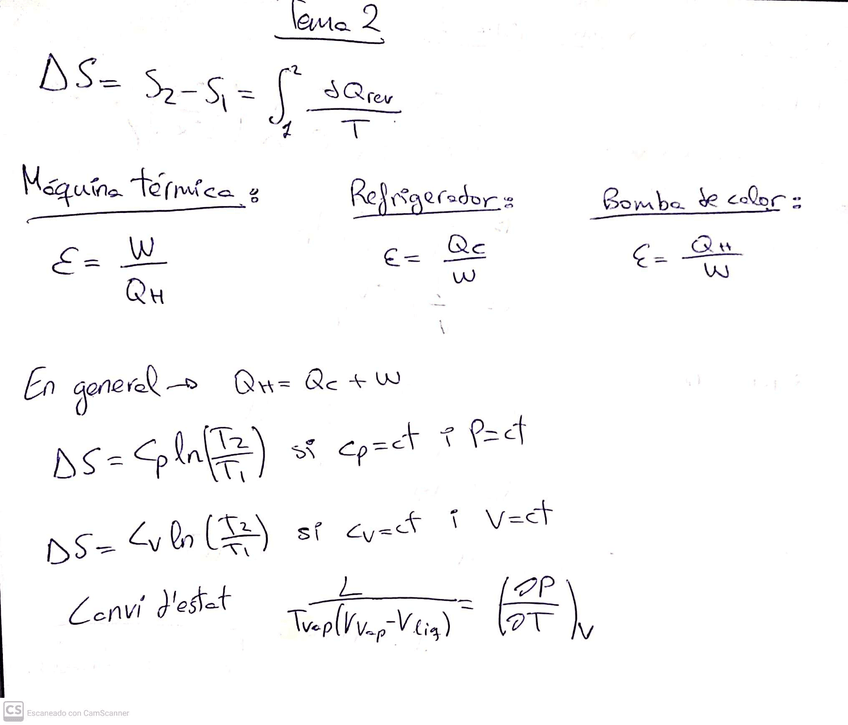 Tema 2
ΔS = S₂ - S₁ = ∫₁² đQrev / T
Máquina térmica:
ε = W / QH
Refrigerador:
ε = Qc / W
Bomba de calor:
ε = QH / W
En general → QH = Qc + W
ΔS = Cp ln(T₂/T₁) si cp=ct i P=ct
ΔS = Cv ln(T₂/T₁) si cv=ct i V=ct
Canvi d'estat L / Tvap(Vvap - Vliq) = (∂P/∂T)v
CS Escaneado con CamScanner